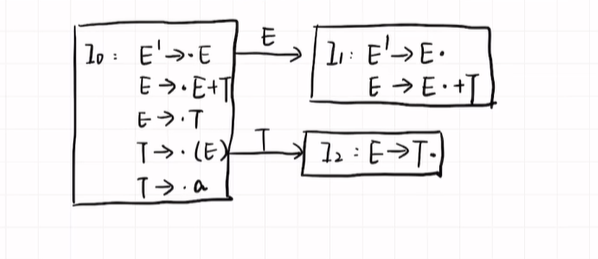 I₀: E'→·E
E→·E+T
E→·T
T→·(E)
T→·a
E
I₁: E'→E·
E→E·+T
T
I₂: E→T·